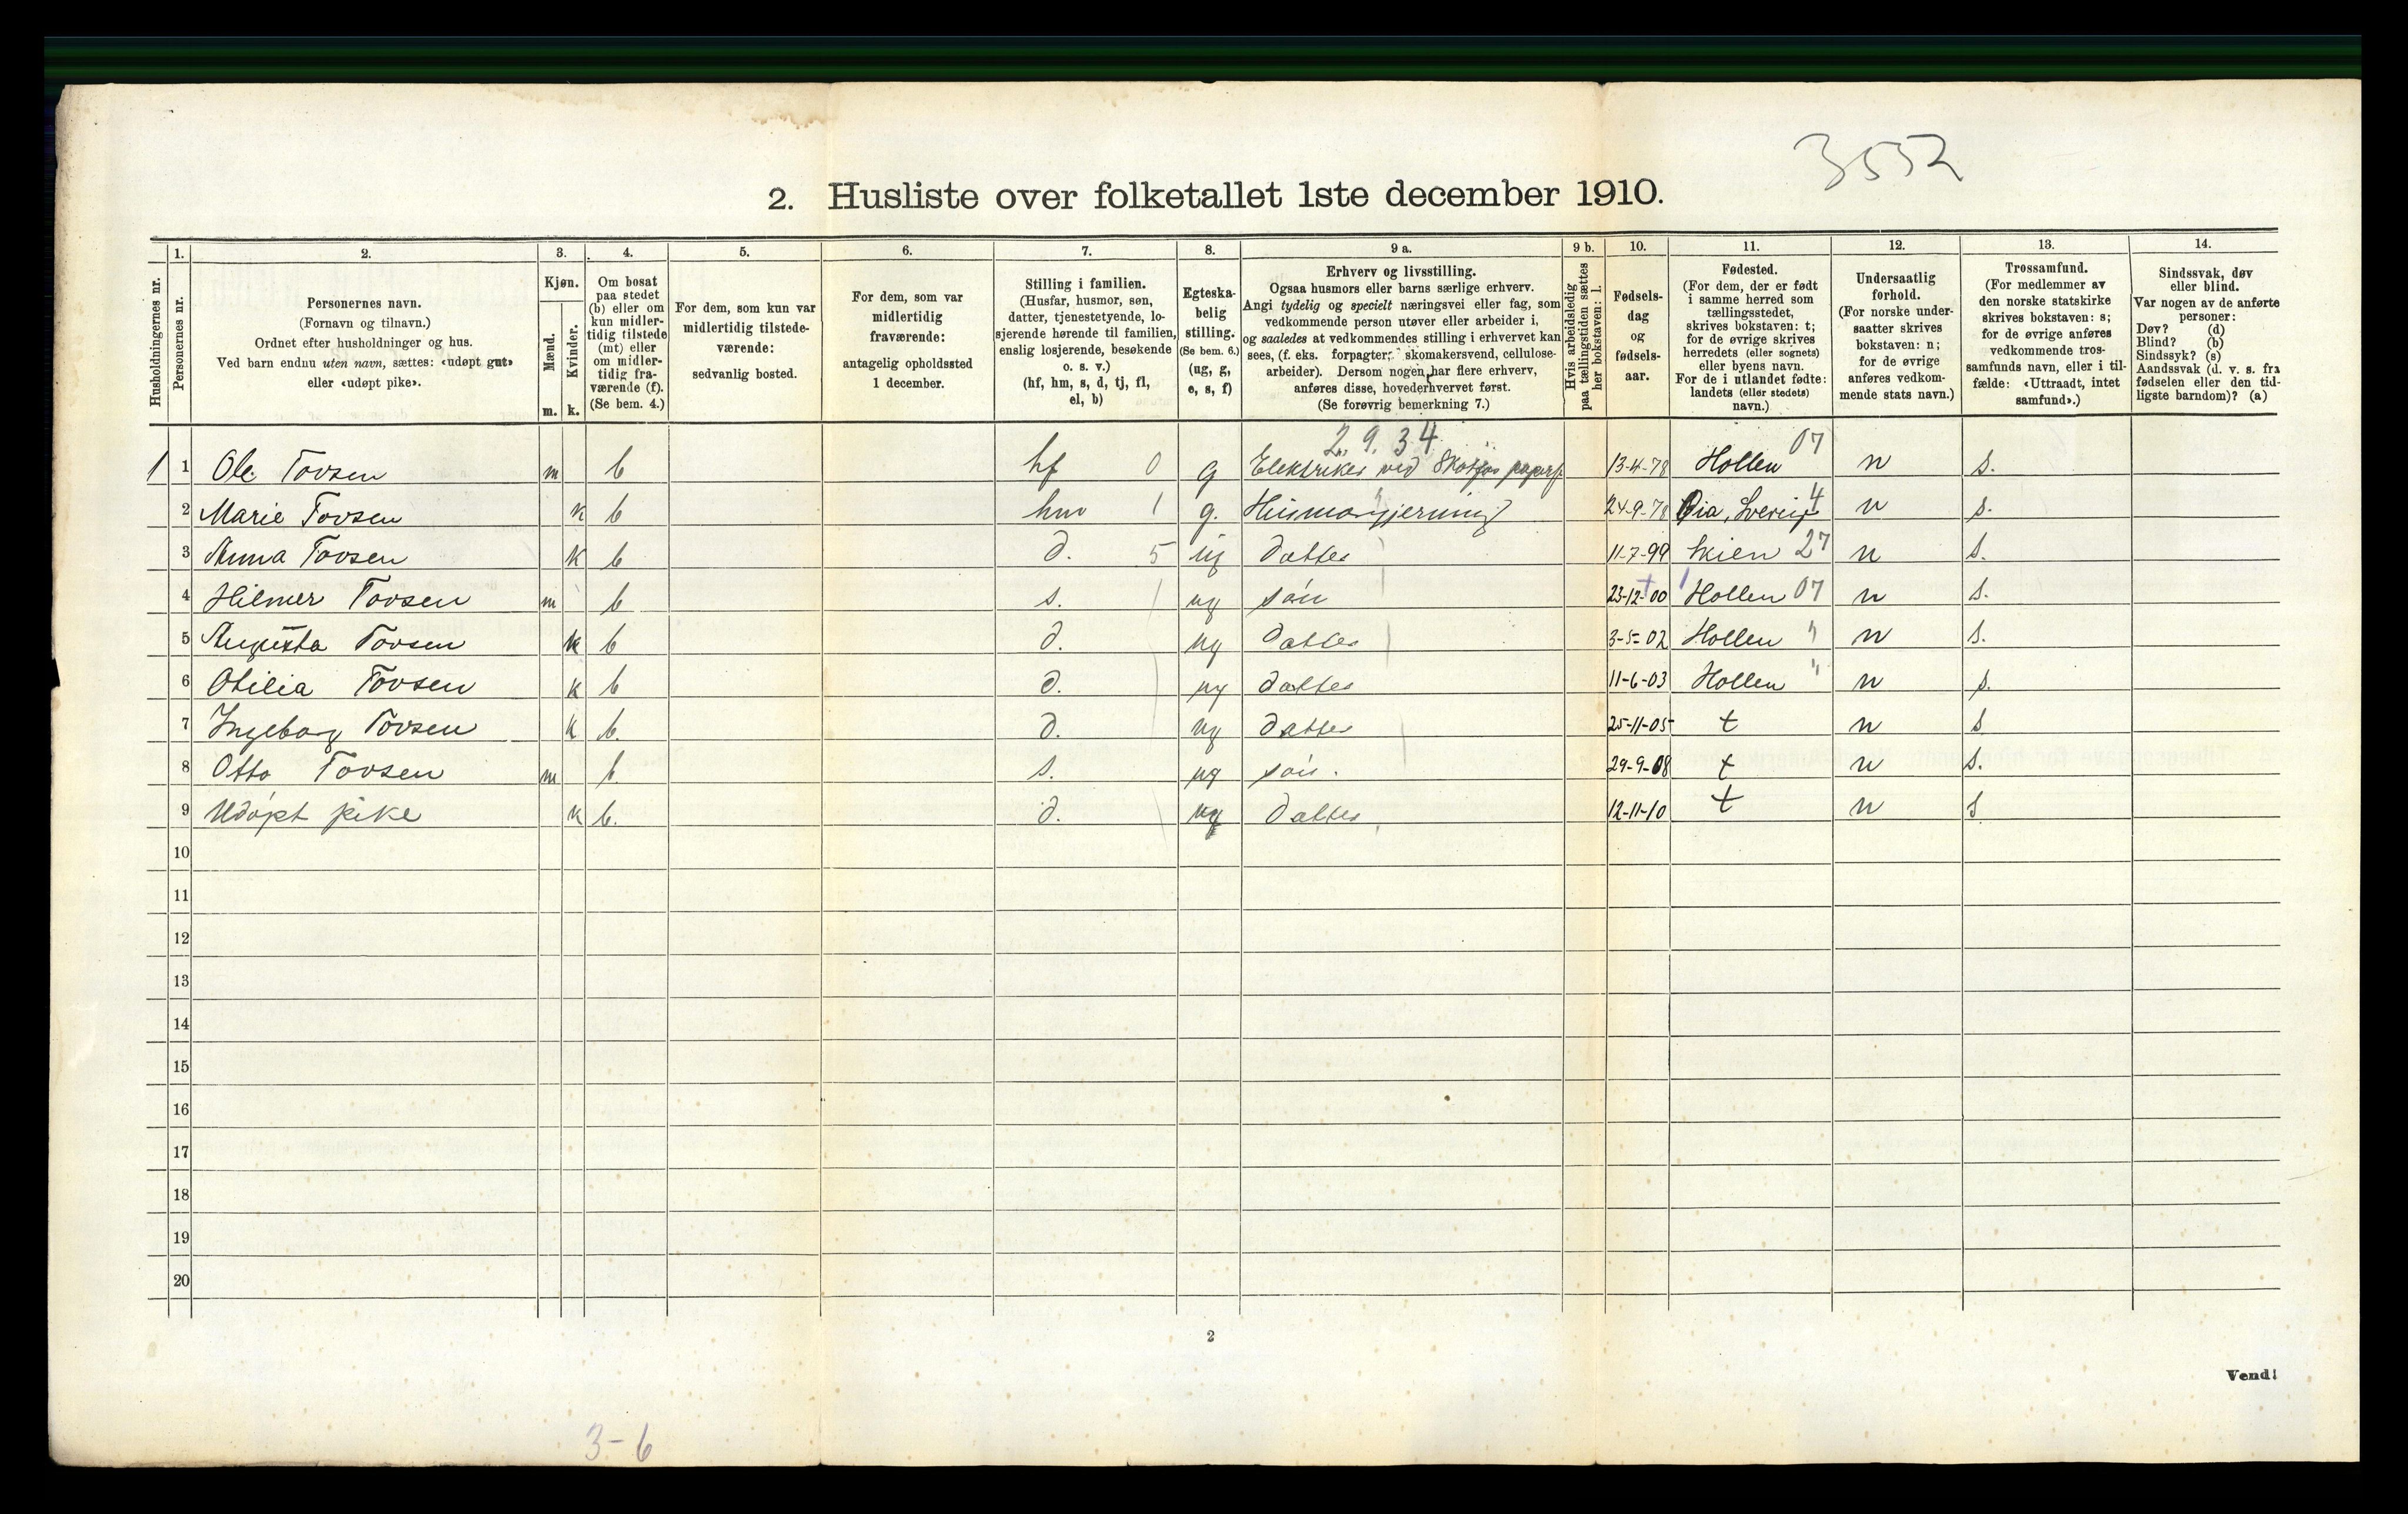 3552
2. Husliste over folketallet 1ste december 1910.
Husholdningernes nr.
1.
Personernes nr.
2.
Personernes navn.
(Fornavn og tilnavn.)
Ordnet efter husholdninger og hus.
Ved barn endnu uten navn, sættes: «udøpt gut»
eller «udøpt pike».
3.
Kjøn.
Mænd.
Kvinder.
m. k.
4.
Om bosat
paa stedet
(b) eller om
kun midler-
tidig tilstede
(mt) eller
om midler-
tidig fra-
værende (f).
(Se bem. 4.)
5.
For dem, som kun var
midlertidig tilstede-
værende:
sedvanlig bosted.
6.
For dem, som var
midlertidig
fraværende:
antagelig opholdssted
1 december.
7.
Stilling i familien.
(Husfar, husmor, søn,
datter, tjenestetyende, lo-
sjerende hørende til familien,
enslig losjerende, besøkende
o. s. v.)
(hf, hm, s, d, tj, fl,
el, b)
8.
Egteska-
belig
stilling.
(Se bem. 6.)
(ug, g,
e, s, f)
9 a.
Erhverv og livsstilling.
Ogsaa husmors eller barns særlige erhverv.
Angi tydelig og specielt næringsvei eller fag, som
vedkommende person utøver eller arbeider i,
og saaledes at vedkommendes stilling i erhvervet kan
sees, (f. eks. forpagter, skomakersvend, cellulose-
arbeider). Dersom nogen har flere erhverv,
anføres disse, hovederhvervet først.
(Se forøvrig bemerkning 7.)
9 b.
Hvis arbeidsledig
paa tællingstiden sættes
her bokstaven: l.
10.
Fødsels-
dag
og
fødsels-
aar.
11.
Fødested.
(For dem, der er født
i samme herred som
tællingsstedet,
skrives bokstaven: t;
for de øvrige skrives
herredets (eller sognets)
eller byens navn.
For de i utlandet fødte:
landets (eller stedets)
navn.)
12.
Undersaatlig
forhold.
(For norske under-
saatter skrives
bokstaven: n;
for de øvrige
anføres vedkom-
mende stats navn.)
13.
Trossamfund.
(For medlemmer av
den norske statskirke
skrives bokstaven: s;
for de øvrige anføres
vedkommende tros-
samfunds navn, eller i til-
fælde: «Uttraadt, intet
samfund».)
14.
Sindssvak, døv
eller blind.
Var nogen av de anførte
personer:
Døv? (d)
Blind? (b)
Sindssyk? (s)
Aandssvak (d. v. s. fra
fødselen eller den tid-
ligste barndom)? (a)
2.9.34 07
1 1 Ole Tovsen m b hf 0 g Elektriker ved Skotfos papirf. 13-4-78 Hollen n s.
2 Marie Tovsen k b hm 1 g. Husmorgjerning 24-9-78 Sverige 4 n s.
3 Anna Tovsen k b d. 5 ug datter 11-7-99 Skien 27 n s.
4 Hilmer Tovsen m b s. ug søn 23-12-00 Hollen 07 n s.
5 Augusta Tovsen k b d. ug datter 3-5-02 Hollen " n s.
6 Otilia Tovsen k b d. ug datter 11-6-03 Hollen " n s.
7 Ingeborg Tovsen k b. d. ug datter 25-11-05 t n s
8 Otto Tovsen m b. s. ug søn. 29-9-08 t n s.
9 Udøpt pike k b. d. ug datter 12-11-10 t n s
10
11
12
13
14
15
16
17
18
19
20
2
Vend!
3-6